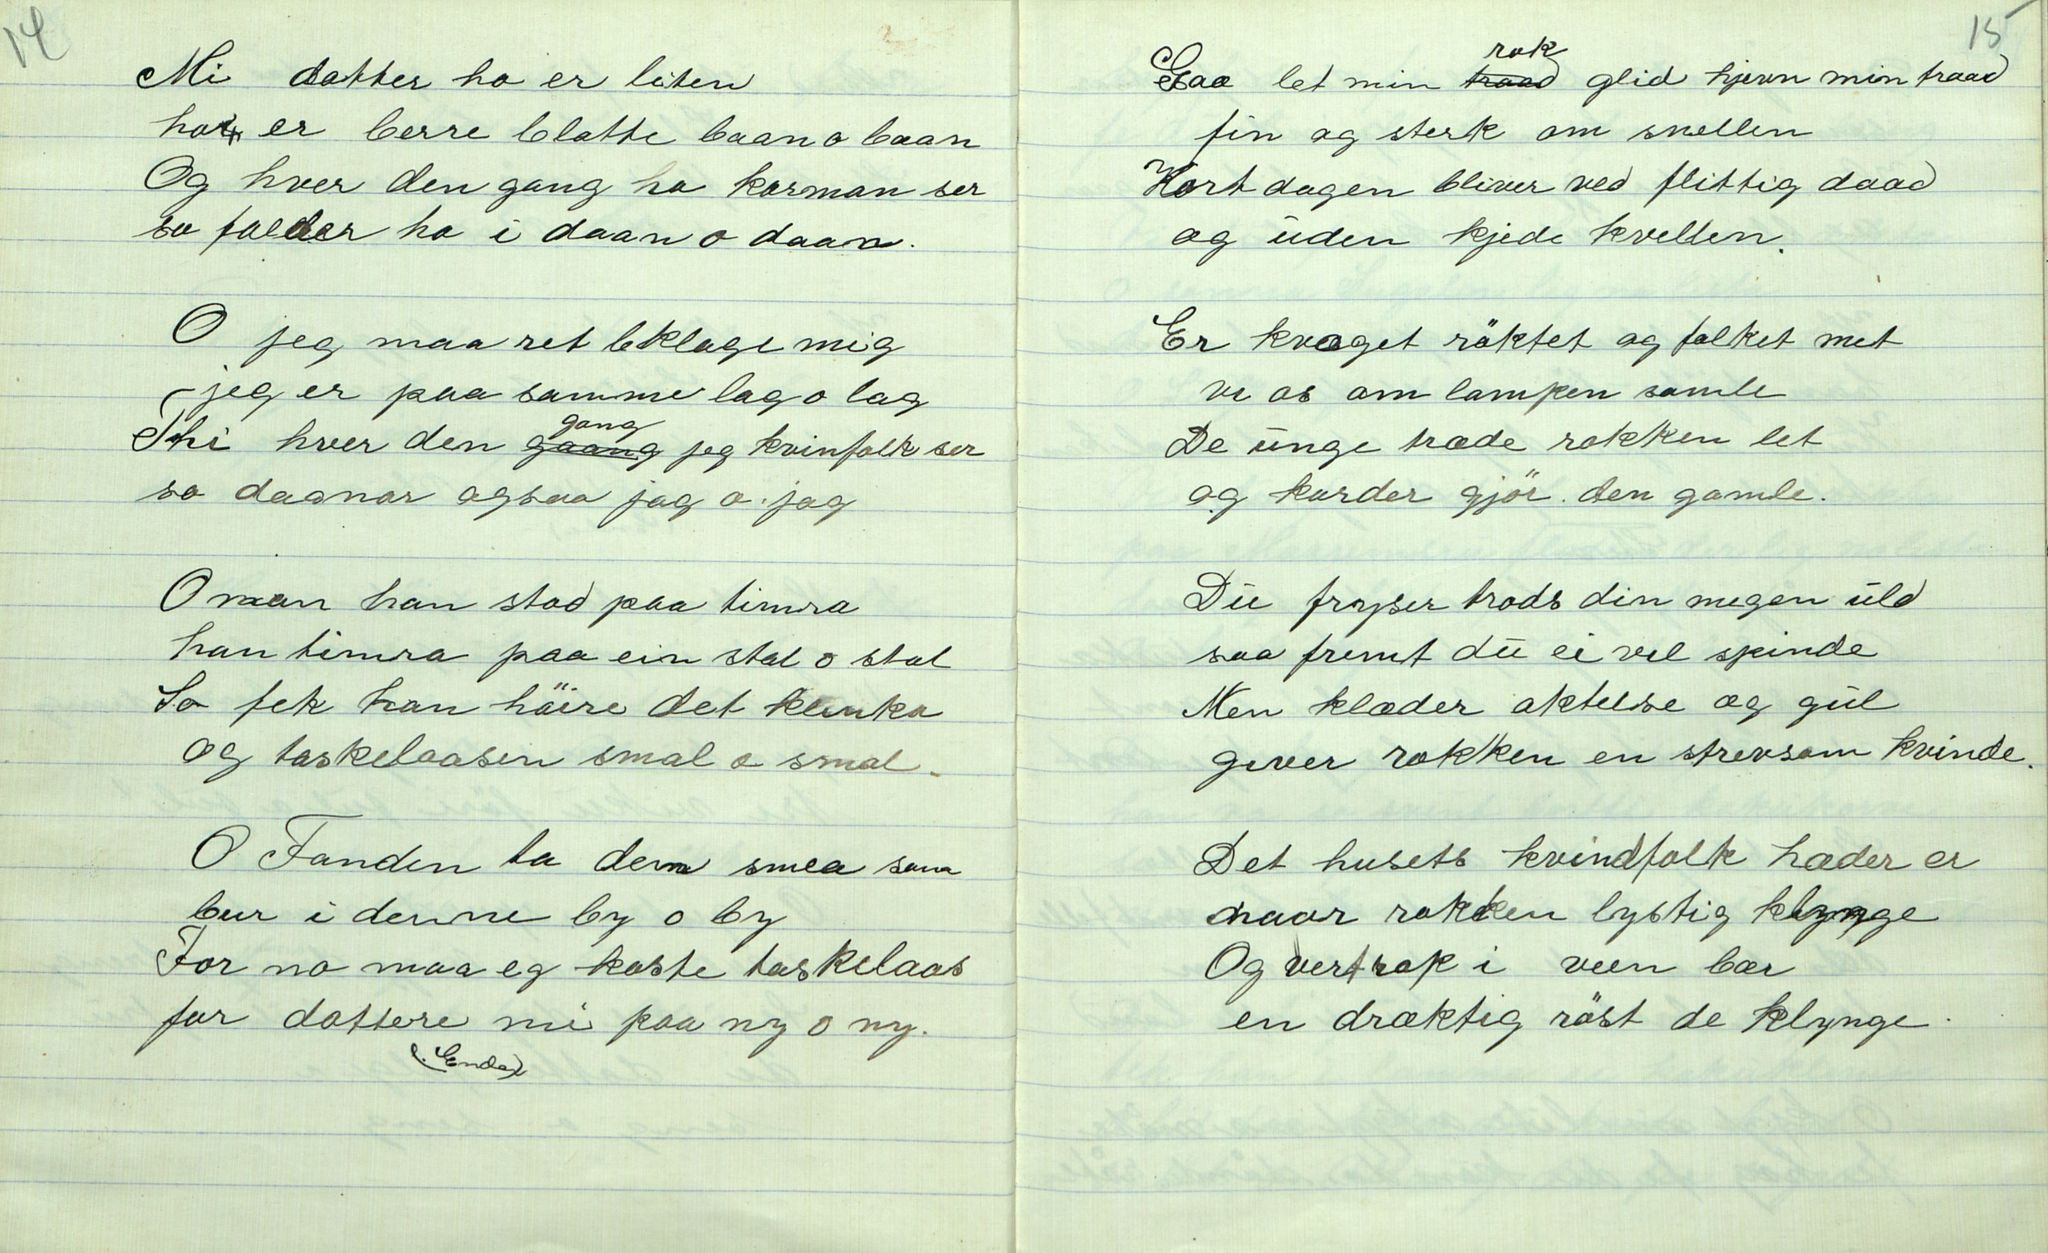 14
Mi dotter ho er liten
ho er berre blotte baan o baan
Og hver den gang ho karman ser
so falder ho i daan o daan.
O jeg maa ret beklage mig
jeg er paa samme lag o lag
Thi hver den gang jeg kvinfolk ser
so daanar ogsaa jag o jag
O man han stod paa timra
han timra paa ein stal o stal
So fek han höire det klinka
og taskelaasen smal o smal.
O Fanden ta dem smea som
bur i denne by o by
For no maa eg koste taskelaas
for dottere mi paa ny o ny.
(Enda)
15
Saa let min rok glid hjevn min traad
fin og sterk om snellen
Kort dagen bliver ved flittig daad
og uden kjede kvellen.
Er kvæget röktet og folket met
vi os om lampen samle
De unge træde rokken let
og karder gjör den gamle.
Du fryser trods din megen uld
saa fremt du ei vil spinde
Men klæder aktelse og gul
giver rokken en strevsom kvinde.
Det husets kvindfolk hæder er
naar rokken lystig klynge
Og vertrok i veven bær
en dræktig röst de klynge.